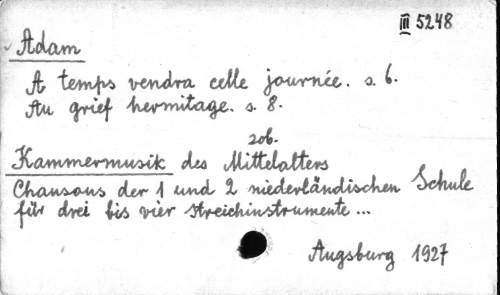 III 5248
Adam
A temps vendra celle journée. s. 6.
Au grief hermitage. s. 8.
zob.
Kammermusik des Mittelalters
Chansons der 1 und 2 niederländischen Schule
für drei bis vier Streichinstrumente ...
Augsburg 1927